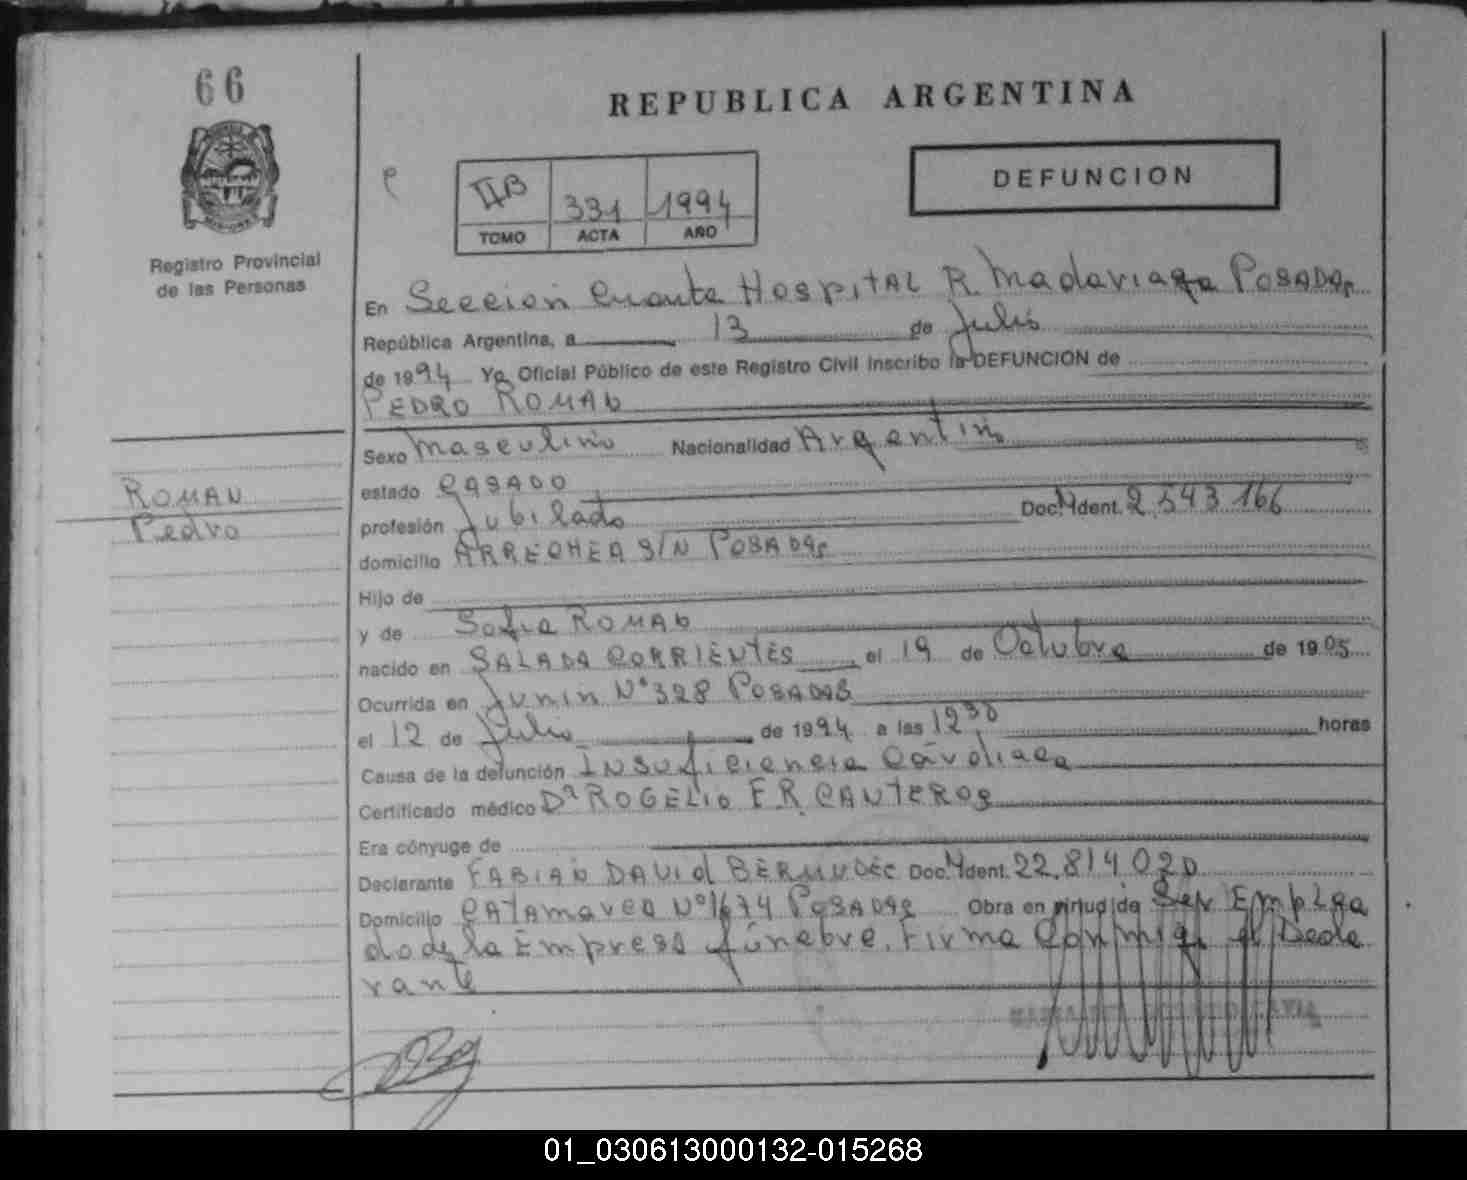 66
REPUBLICA ARGENTINA
DEFUNCION
IIB 331 1994
TOMO ACTA AÑO
Registro Provincial
de las Personas
En Seccion Cuarta Hospital R. Madariaga Posadas
República Argentina, a 13 de Julio
de 1994 Yo, Oficial Público de este Registro Civil inscribo la DEFUNCION de
PEDRO ROMAN
Sexo Masculino Nacionalidad Argentino
estado CASADO
profesión Jubilado Doc. Ident. 2.543.166
domicilio ARRECHEA S/N POSADAS
Hijo de
y de Sofia ROMAN
nacido en SALADA CORRIENTES el 19 de Octubre de 1905
Ocurrida en Junin N° 328 POSADAS
el 12 de Julio de 1994 a las 1230 horas
Causa de la defunción Insuficiencia Cardiaca
Certificado médico Dr ROGELIO F.R. CANTEROS
Era cónyuge de
Declarante FABIAN DAVID BERMUDEC Doc. Ident. 22.814.020
Domicilio CATAMARCA N° 1674 POSADAS Obra en virtud de Ser Emplea
do de la Empresa fúnebre. Firma Conmigo el Decla
rante
ROMAN
Pedro
01_030613000132-015268